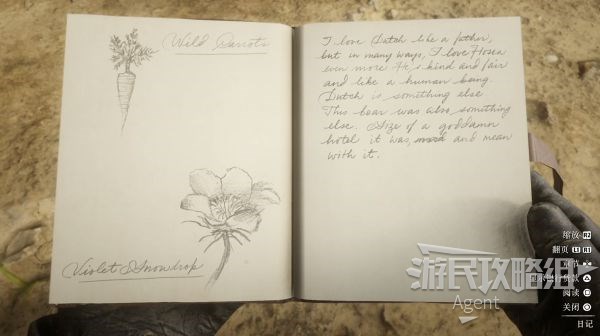 Wild Carrots
Violet Snowdrop
I love Dutch like a father,
but in many ways, I love Hosea
even more. He's kind and fair
and like a human being
Dutch is something else
This bear was also something
else. Size of a goddamn
hotel it was, and mean
with it.
游民攻略组
Agent
缩放 R2
翻页 L1 R1
阅读
关闭
日记